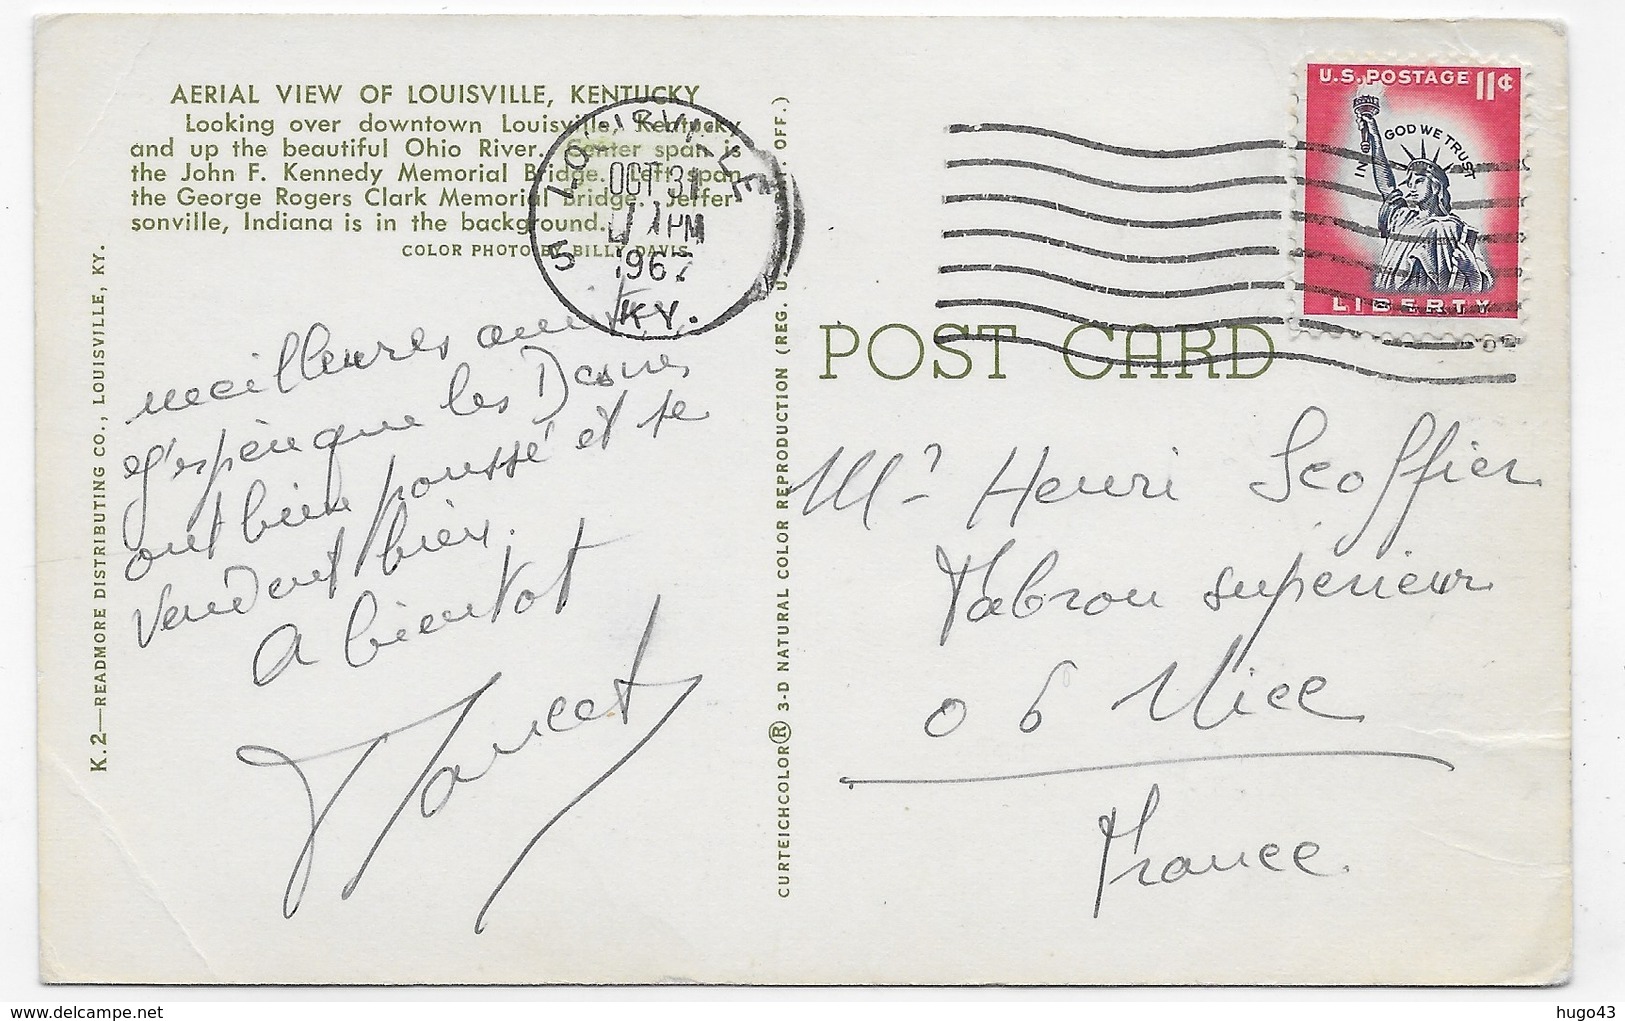 AERIAL VIEW OF LOUISVILLE, KENTUCKY
Looking over downtown Louisville, Kentucky
and up the beautiful Ohio River. Center span is
the John F. Kennedy Memorial Bridge. Left span
the George Rogers Clark Memorial Bridge. Jeffer
sonville, Indiana is in the background.
COLOR PHOTO BY BILLY DAVIS
LOUISVILLE
OCT 31
PM
1967
KY.
meilleures
que les
ont bien poussé et se
vendent bien.
A bientot
K.2—READMORE DISTRIBUTING CO., LOUISVILLE, KY.
CURTEICHCOLOR® 3-D NATURAL COLOR REPRODUCTION (REG. U. OFF.)
U.S. POSTAGE 11¢
IN GOD WE TRUST
LIBERTY
POST CARD
Mr Henri
superieur
06 Nice
France.
hugo43